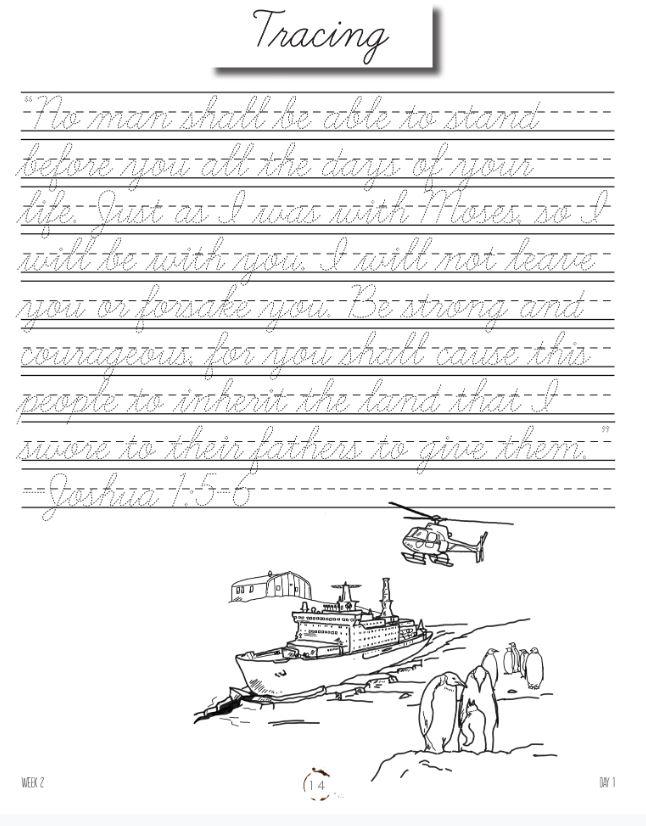 Tracing
"No man shall be able to stand
before you all the days of your
life. Just as I was with Moses, so I
will be with you. I will not leave
you or forsake you. Be strong and
courageous, for you shall cause this
people to inherit the land that I
swore to their fathers to give them."
—Joshua 1:5-6
WEEK 2
14
DAY 1